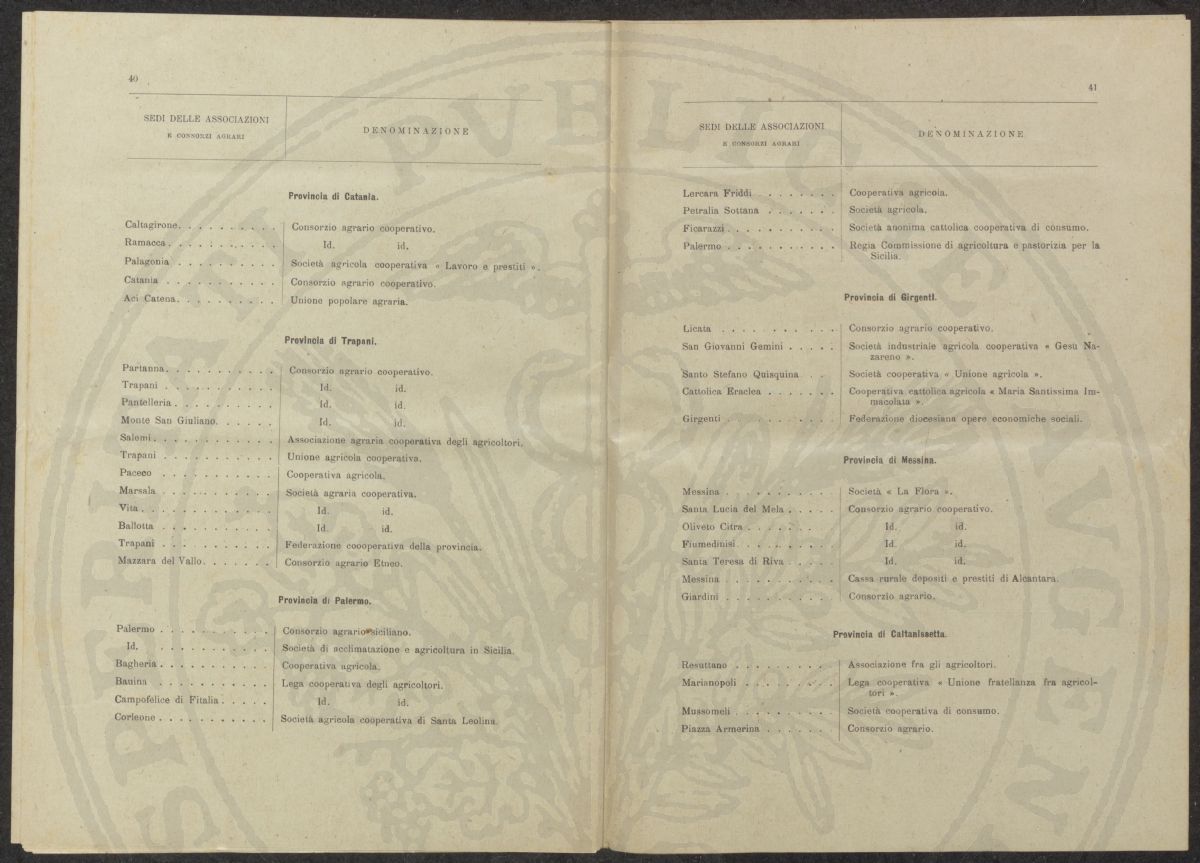 40
SEDI DELLE ASSOCIAZIONI
E CONSORZI AGRARI
DENOMINAZIONE
Provincia di Catania.
Caltagirone. . . . . . . . . . Consorzio agrario cooperativo.
Ramacca. . . . . . . . . . . Id. id.
Palagonia . . . . . . . . . . Società agricola cooperativa « Lavoro e prestiti ».
Catania . . . . . . . . . . . Consorzio agrario cooperativo.
Aci Catena. . . . . . . . . . Unione popolare agraria.
Provincia di Trapani.
Partanna. . . . . . . . . . . Consorzio agrario cooperativo.
Trapani . . . . . . . . . . . Id. id.
Pantelleria . . . . . . . . . . Id. id.
Monte San Giuliano. . . . . . Id. id.
Salemi. . . . . . . . . . . . Associazione agraria cooperativa degli agricoltori.
Trapani . . . . . . . . . . . Unione agricola cooperativa.
Paceco . . . . . . . . . . . Cooperativa agricola.
Marsala . . . . . . . . . . . Società agraria cooperativa.
Vita . . . . . . . . . . . . . Id. id.
Ballotta . . . . . . . . . . . Id. id.
Trapani . . . . . . . . . . . Federazione coooperativa della provincia.
Mazzara del Vallo. . . . . . . Consorzio agrario Etneo.
Provincia di Palermo.
Palermo . . . . . . . . . . . Consorzio agrario siciliano.
Id. . . . . . . . . . . . Società di acclimatazione e agricoltura in Sicilia.
Bagheria . . . . . . . . . . . Cooperativa agricola.
Bauina . . . . . . . . . . . Lega cooperativa degli agricoltori.
Campofelice di Fitalia . . . . . Id. id.
Corleone . . . . . . . . . . . Società agricola cooperativa di Santa Leolina.
41
SEDI DELLE ASSOCIAZIONI
E CONSORZI AGRARI
DENOMINAZIONE
Lercara Friddi . . . . . . . Cooperativa agricola.
Petralia Sottana . . . . . . . Società agricola.
Ficarazzi . . . . . . . . . . . Società anonima cattolica cooperativa di consumo.
Palermo . . . . . . . . . . . Regia Commissione di agricoltura e pastorizia per la
Sicilia.
Provincia di Girgenti.
Licata . . . . . . . . . . . Consorzio agrario cooperativo.
San Giovanni Gemini . . . . . Società industriale agricola cooperativa « Gesù Na-
zareno ».
Santo Stefano Quisquina . . Società cooperativa « Unione agricola ».
Cattolica Eraclea . . . . . . . Cooperativa cattolica agricola « Maria Santissima Im-
macolata ».
Girgenti . . . . . . . . . . . Federazione diocesana opere economiche sociali.
Provincia di Messina.
Messina . . . . . . . . . . . Società « La Flora ».
Santa Lucia del Mela . . . . . Consorzio agrario cooperativo.
Oliveto Citra . . . . . . . Id. id.
Fiumedinisi. . . . . . . . . . Id. id.
Santa Teresa di Riva . . . . . Id. id.
Messina . . . . . . . . . . . Cassa rurale depositi e prestiti di Alcantara.
Giardini . . . . . . . . . . . Consorzio agrario.
Provincia di Caltanissetta.
Resuttano . . . . . . . . . . Associazione fra gli agricoltori.
Marianopoli . . . . . . . . . Lega cooperativa « Unione fratellanza fra agricol-
tori ».
Mussomeli . . . . . . . . . . Società cooperativa di consumo.
Piazza Armerina . . . . . . . Consorzio agrario.